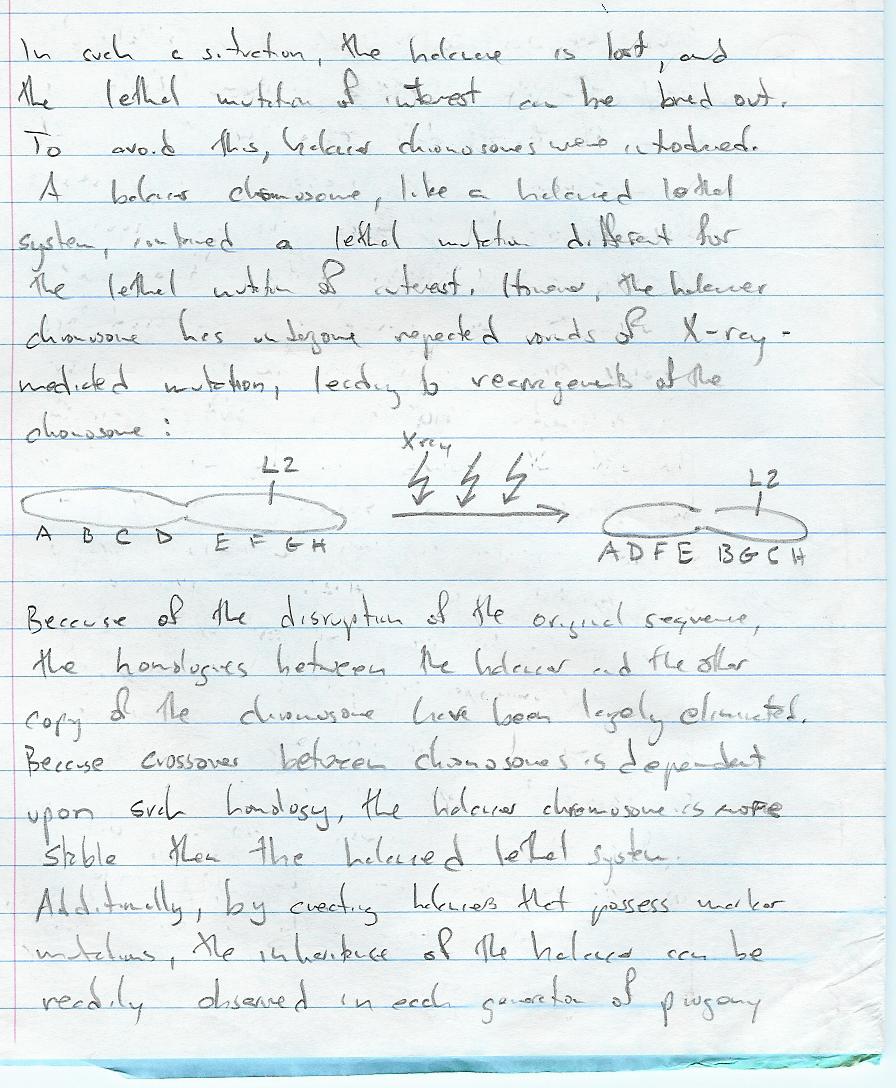 In such a situation, the balance is lost, and
the lethal mutation of interest can be bred out.
To avoid this, balancer chromosomes were introduced.
A balancer chromosome, like a balanced lethal
system, contained a lethal mutation different for
the lethal mutation of interest. However, the balancer
chromosome has undergone repeated rounds of X-ray-
mediated mutation, leading to rearragements of the
chomosome :
L2
A B C D E F G H
X ray
L2
A D F E B G C H
Because of the disruption of the original sequence,
the homologies between the balancer and the other
copy of the chromosome have been largely eliminated.
Because crossover between chomosomes is dependent
upon such homology, the balancer chromosome is more
stable than the balanced lethal system.
Additionally, by creating balancers that possess marker
mutations, the inheritance of the balancer can be
readily observed in each generation of progeny